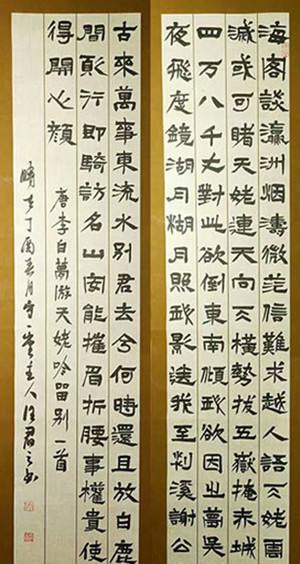 海客談瀛洲烟濤微茫信難求越人語天姥雲
滅或可睹天姥連天向天橫勢拔五嶽掩赤城
四万八千丈對此欲倒東南傾我欲因之夢吳
夜飛度鏡湖月湖月照我影送我至剡溪謝公
古來萬事東流水別君去兮何時還且放白鹿
間須行即騎訪名山安能摧眉折腰事權貴使
得開心顏
唐李白夢游天姥吟留別一首
丁酉春月守一堂主人